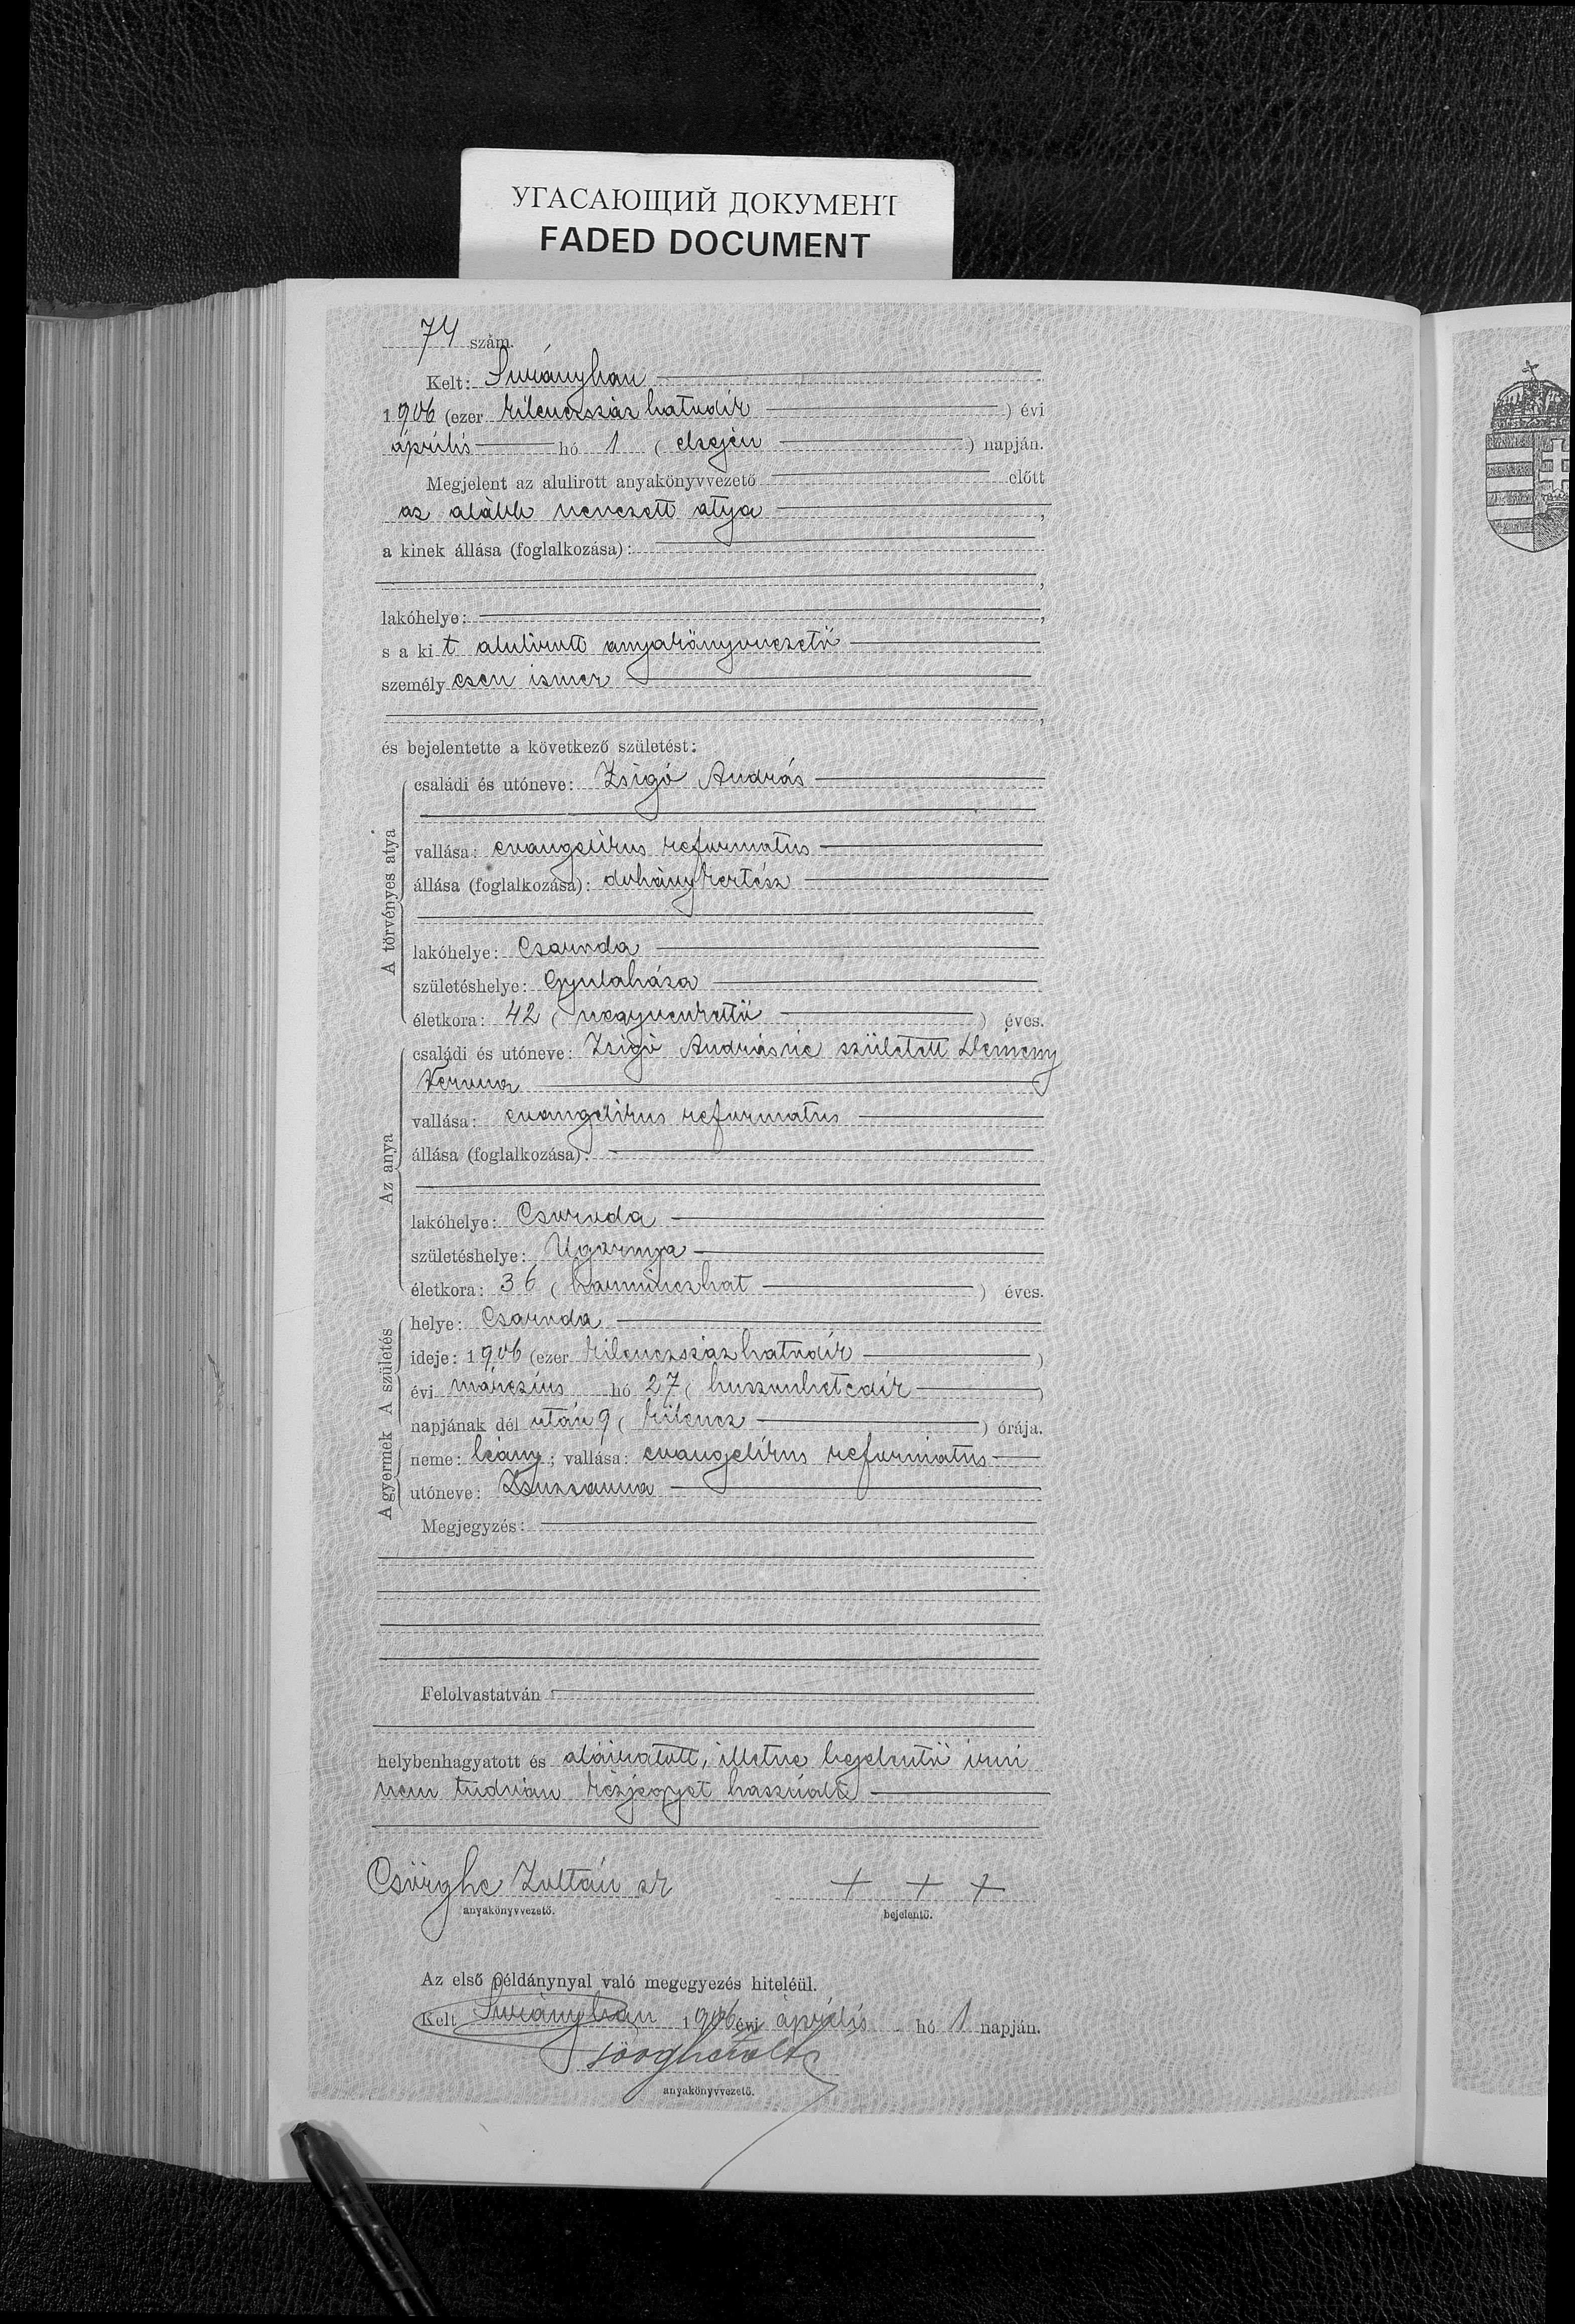 УГАСАЮЩИЙ ДОКУМЕНТ
FADED DOCUMENT
74 szám.
Kelt: Surányban
1906 (ezer kilenczszáz hatodik ) évi
április hó 1 ( elsején ) napján.
Megjelent az alulirott anyakönyvvezető előtt
az alább nevezett atya ,
a kinek állása (foglalkozása):
,
lakóhelye: ,
s a kit alulirott anyakönyvvezető
személyesen ismer
,
és bejelentette a következő születést:
A törvényes atya
családi és utóneve: Zsigó András
vallása: evangelikus reformatus
állása (foglalkozása): dohánykertész
lakóhelye: Csaroda
születéshelye: Gyulaháza
életkora: 42 ( negyvenkettő ) éves.
Az anya
családi és utóneve: Zsigó Andrásné született Demeny
Verona
vallása: evangelikus reformatus
állása (foglalkozása):
lakóhelye: Csaroda
születéshelye: Ugornya
életkora: 36 ( harminczhat ) éves.
A születés
helye: Csaroda
ideje: 1906 (ezer kilenczszáz hatodik )
évi márczius hó 27 ( huszonhetedik )
napjának dél után 9 ( kilencz ) órája.
A gyermek
neme: leány; vallása: evangelikus reformatus
utóneve: Zsuzsanna
Megjegyzés:
Felolvastatván
helybenhagyatott és aláiratott, illetve bejelentő irni
nem tudván kézjegyet használt
Csörghe Zoltán sk + + +
anyakönyvvezető. bejelentő.
Az első példánynyal való megegyezés hiteléül.
Kelt Surányban 1906 évi április hó 1 napján.
anyakönyvvezető.